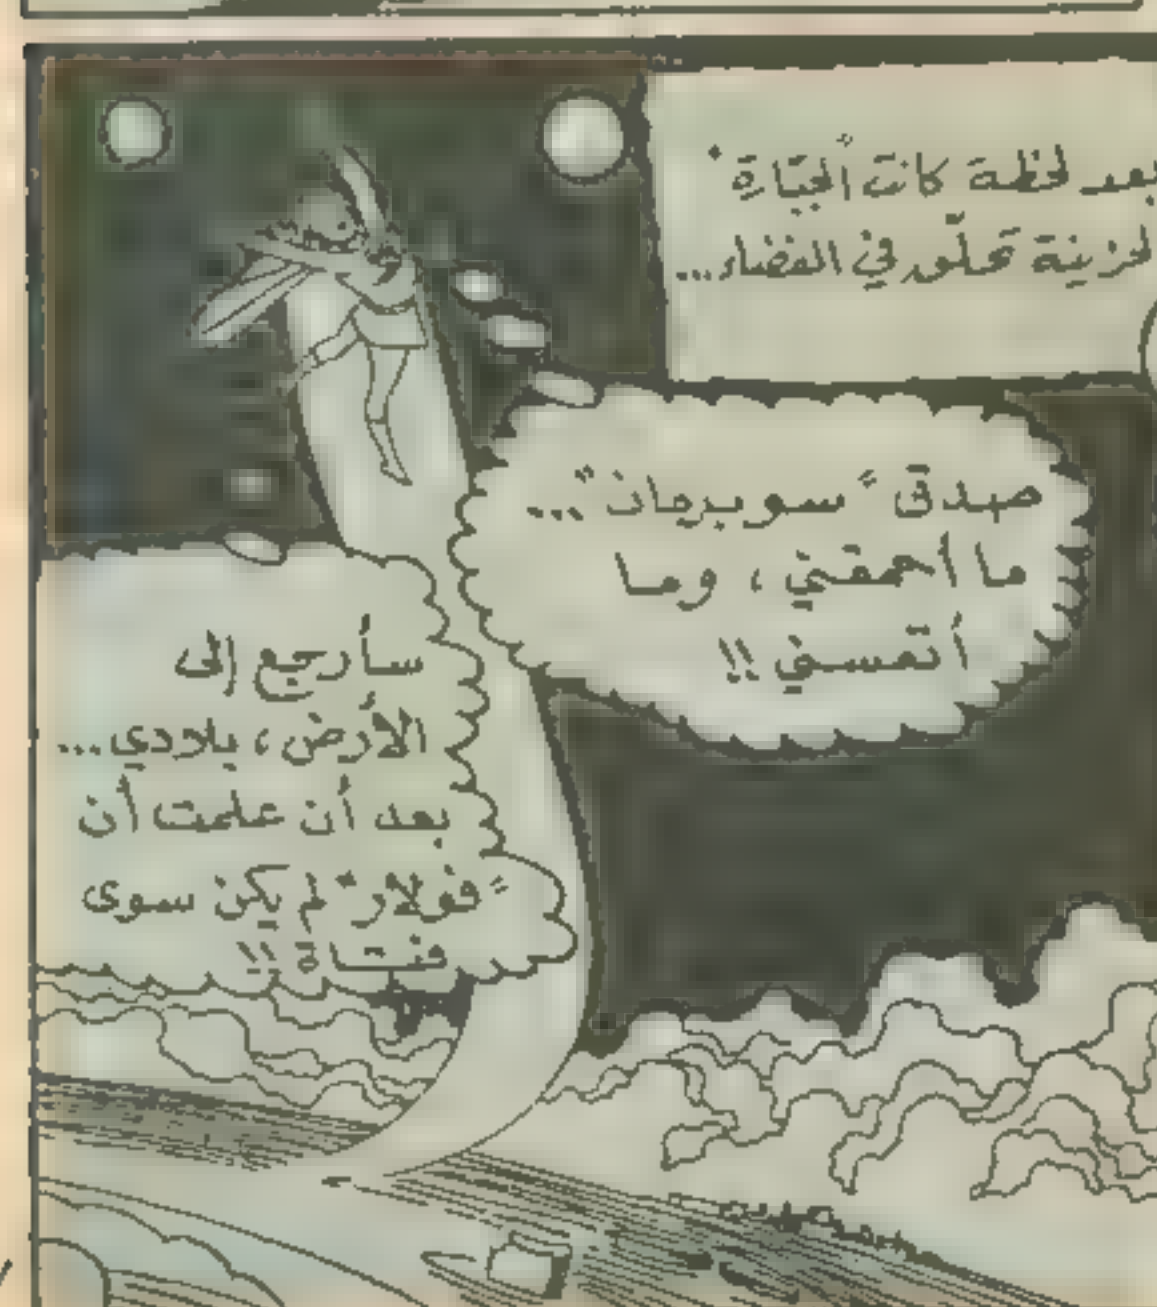 بعد لحظة كانت "الجبّارة"
لحزينة تحلّق في الفضاء...
صدق "سوبرمان"...
ما أحمقني، وما
أتعسني !!
سأرجع إلى
الأرض، بلادي...
بعد أن علمت أن
"فولار" لم يكن سوى
فتاة !!